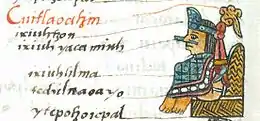 Cuitlaoactzin
ixiuhtzon
ixiuh yaca miuh
ixiuhtilma
tẽchilnaoa yo
ytepotzoicpal